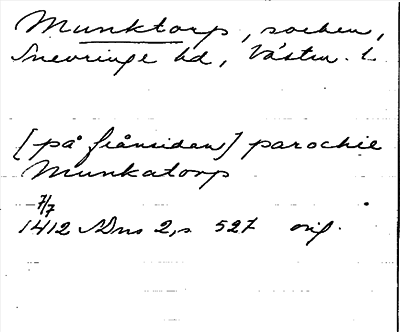 Munktorp, socken,
Snevringe hd, Västm. l.
[på frånsidan] parochie
Munkatorp
7/7
1412 SDns 2, s 527 orig.